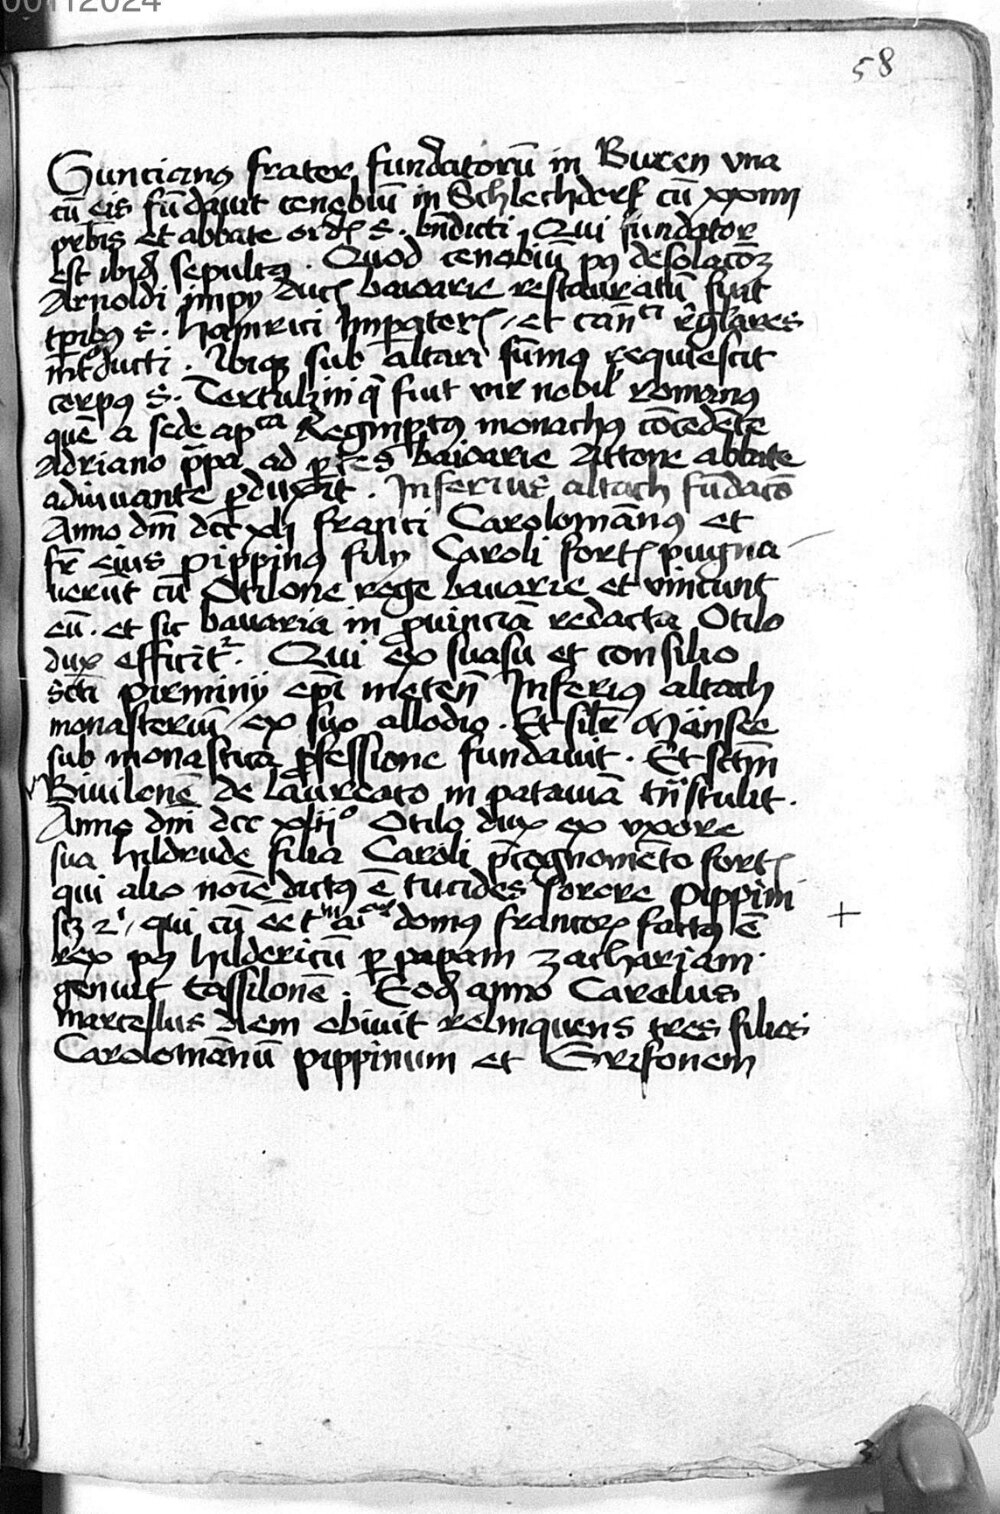 00112024
58
Guncianus frater fundatorū in Buren vna
cū eis fūdauit cenobiū in Schlechdorf cū xxiiii
prbis et abbate ordis S. bndicti. Qui fundator
est ibid sepultus. Quod cenobiū pus desolacōem
Arnoldi impy ducis baioarie restauratū fuit
tpribus S. hainrici Imperatoris, et canci reglares
introducti. Ibique sub altari sūmo requiescit
corpus S. Tertulini q fuit vir nobilis romanus
quē a sede apca Reginprtus monachus cōcedēte
Adriano ppa ad ptes baioarie Attone abbate
adiuuante pduxit. Inferius altach fūdacō
Anno dm dcc xli franci Carolomānus et
fr eius pippinus filij Caroli fortis puigna
uerūt cū Otilone rege bauarie et vincunt
eū. et sic bauaria in prouinciā redacta Otilo
dux efficit. Qui ex suasu et consilio
scti pirminij epi meteñ Inferius altach
monasteriū ex suo allodio. Et silr Mänsee
sub monastica pfessione fundauit. Et sctm
Biuilonē de laureato in patauiā trnstulit.
Anno dm dcc xliiio Otilo dux ex vxore
sua hildrude filia Caroli pcognomēto fortis
qui alio noīe dictus ē tucides sorore pippini
scz 2i, qui cū eēt domus francorum factus ē
rex pus hildericū p papam zachariam.
genuit tassilonē. Eod anno Carolus
marcellus diem obiuit relinquens tres filios
Carolomānū pippinum et Grifonem
+